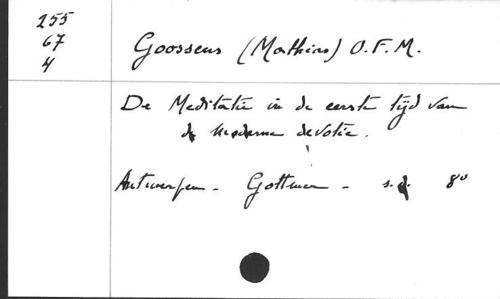 255
67
4
Goossens (Mathias) O.F.M.
De Meditatie in de eerste tijd van
de Moderne devotie.
Antwerpen - Gottmer - s.d. 8°